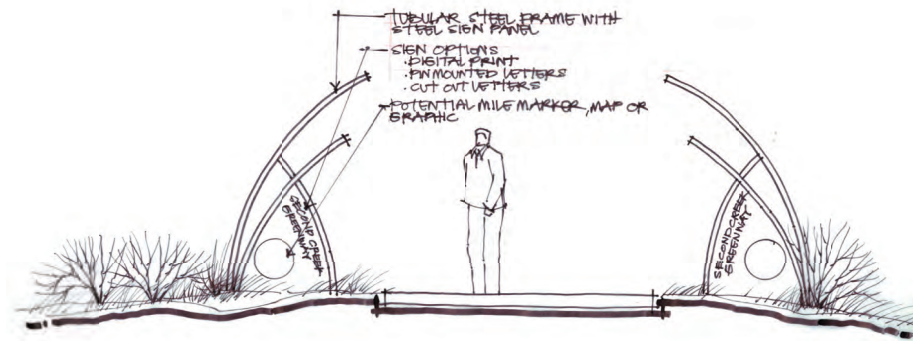 TUBULAR STEEL FRAME WITH
STEEL SIGN PANEL
SIGN OPTIONS
·DIGITAL PRINT
·PIN MOUNTED LETTERS
·CUT OUT LETTERS
POTENTIAL MILE MARKER, MAP OR
GRAPHIC
SECOND CREEK
GREENWAY
SECOND CREEK
GREENWAY